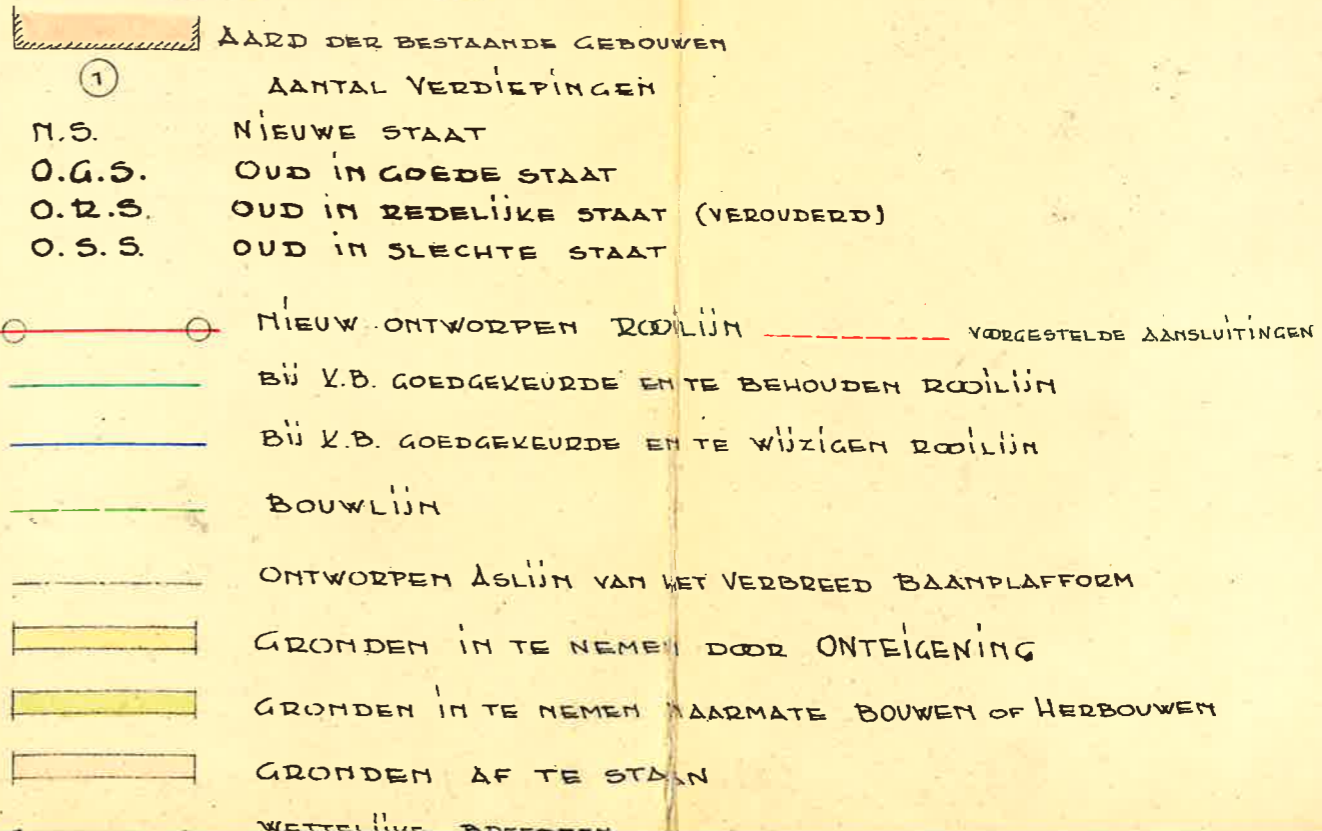 AARD DER BESTAANDE GEBOUWEN
1 AANTAL VERDIEPINGEN
N.S. NIEUWE STAAT
O.G.S. OUD IN GOEDE STAAT
O.R.S. OUD IN REDELIJKE STAAT (VEROUDERD)
O.S.S. OUD IN SLECHTE STAAT
NIEUW ONTWORPEN ROOILIJN VOORGESTELDE AANSLUITINGEN
BIJ K.B. GOEDGEKEURDE EN TE BEHOUDEN ROOILIJN
BIJ K.B. GOEDGEKEURDE EN TE WIJZIGEN ROOILIJN
BOUWLIJN
ONTWORPEN ASLIJN VAN HET VERBREED BAANPLAFFORM
GRONDEN IN TE NEMEN DOOR ONTEIGENING
GRONDEN IN TE NEMEN NAARMATE BOUWEN OF HERBOUWEN
GRONDEN AF TE STAAN
WETTELIJKE